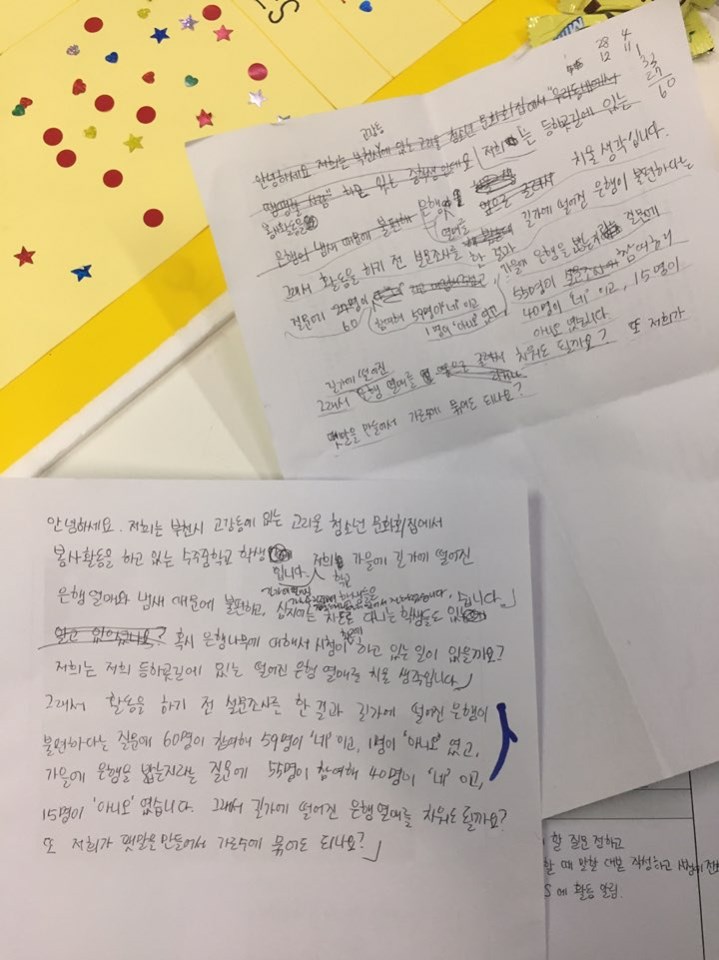 28 4
12 11
33
27
60
고강동
안녕하세요 저희는 부천시에 있는 고리울 청소년 문화회집에서 "우리동네에서
하고 있는 중학생인데요 저희는 등하굣길에 있는
봉사활동을
은행의 냄새 때문에 불편해 은행 열매를 앞으로 굴려서 치울 생각입니다.
그래서 활동을 하기 전 설문조사를 한 결과 길가에 떨어진 은행이 불편하다는
질문에 60 참여해 59명이 '네' 이고 가을에 은행을 밟는지라는 질문에
1명이 '아니오' 였고 55명이 설문조사 참여해서
40명이 '네' 이고, 15명이
아니오 였습니다
길가에 떨어진
그래서 은행 열매를 앞으로 굴려서 치워도 될까요? 또 저희가
팻말을 만들어서 가로수에 묶어도 되나요?
안녕하세요. 저희는 부천시 고강동에 있는 고리울 청소년 문화회집에서
봉사활동을 하고 있는 수주중학교 학생입니다. 저희 학교 가을에 길가에 떨어진
은행열매와 냄새 때문에 불편하고, 심지어는 차도로 다니는 학생들도 있습니다.
알고 있으셨나요? 혹시 은행나무에 대해서 시청에서 하고 있는 일이 있을까요?
저희는 저희 등하굣길에 있는 떨어진 은행 열매를 치울 생각입니다
그래서 활동을 하기 전 설문조사를 한 결과 길가에 떨어진 은행이
불편하다는 질문에 60명이 참여해 59명이 '네' 이고, 1명이 '아니오' 였고,
가을에 은행을 밟는지라는 질문에 55명이 참여해 40명이 '네' 이고,
15명이 '아니오' 였습니다. 그래서 길가에 떨어진 은행열매를 치워도 될까요?
또 저희가 팻말을 만들어서 가로수에 묶어도 되나요?
할 질문 정하고
할 때 말할 대본 작성하고
S에 활동 알림.